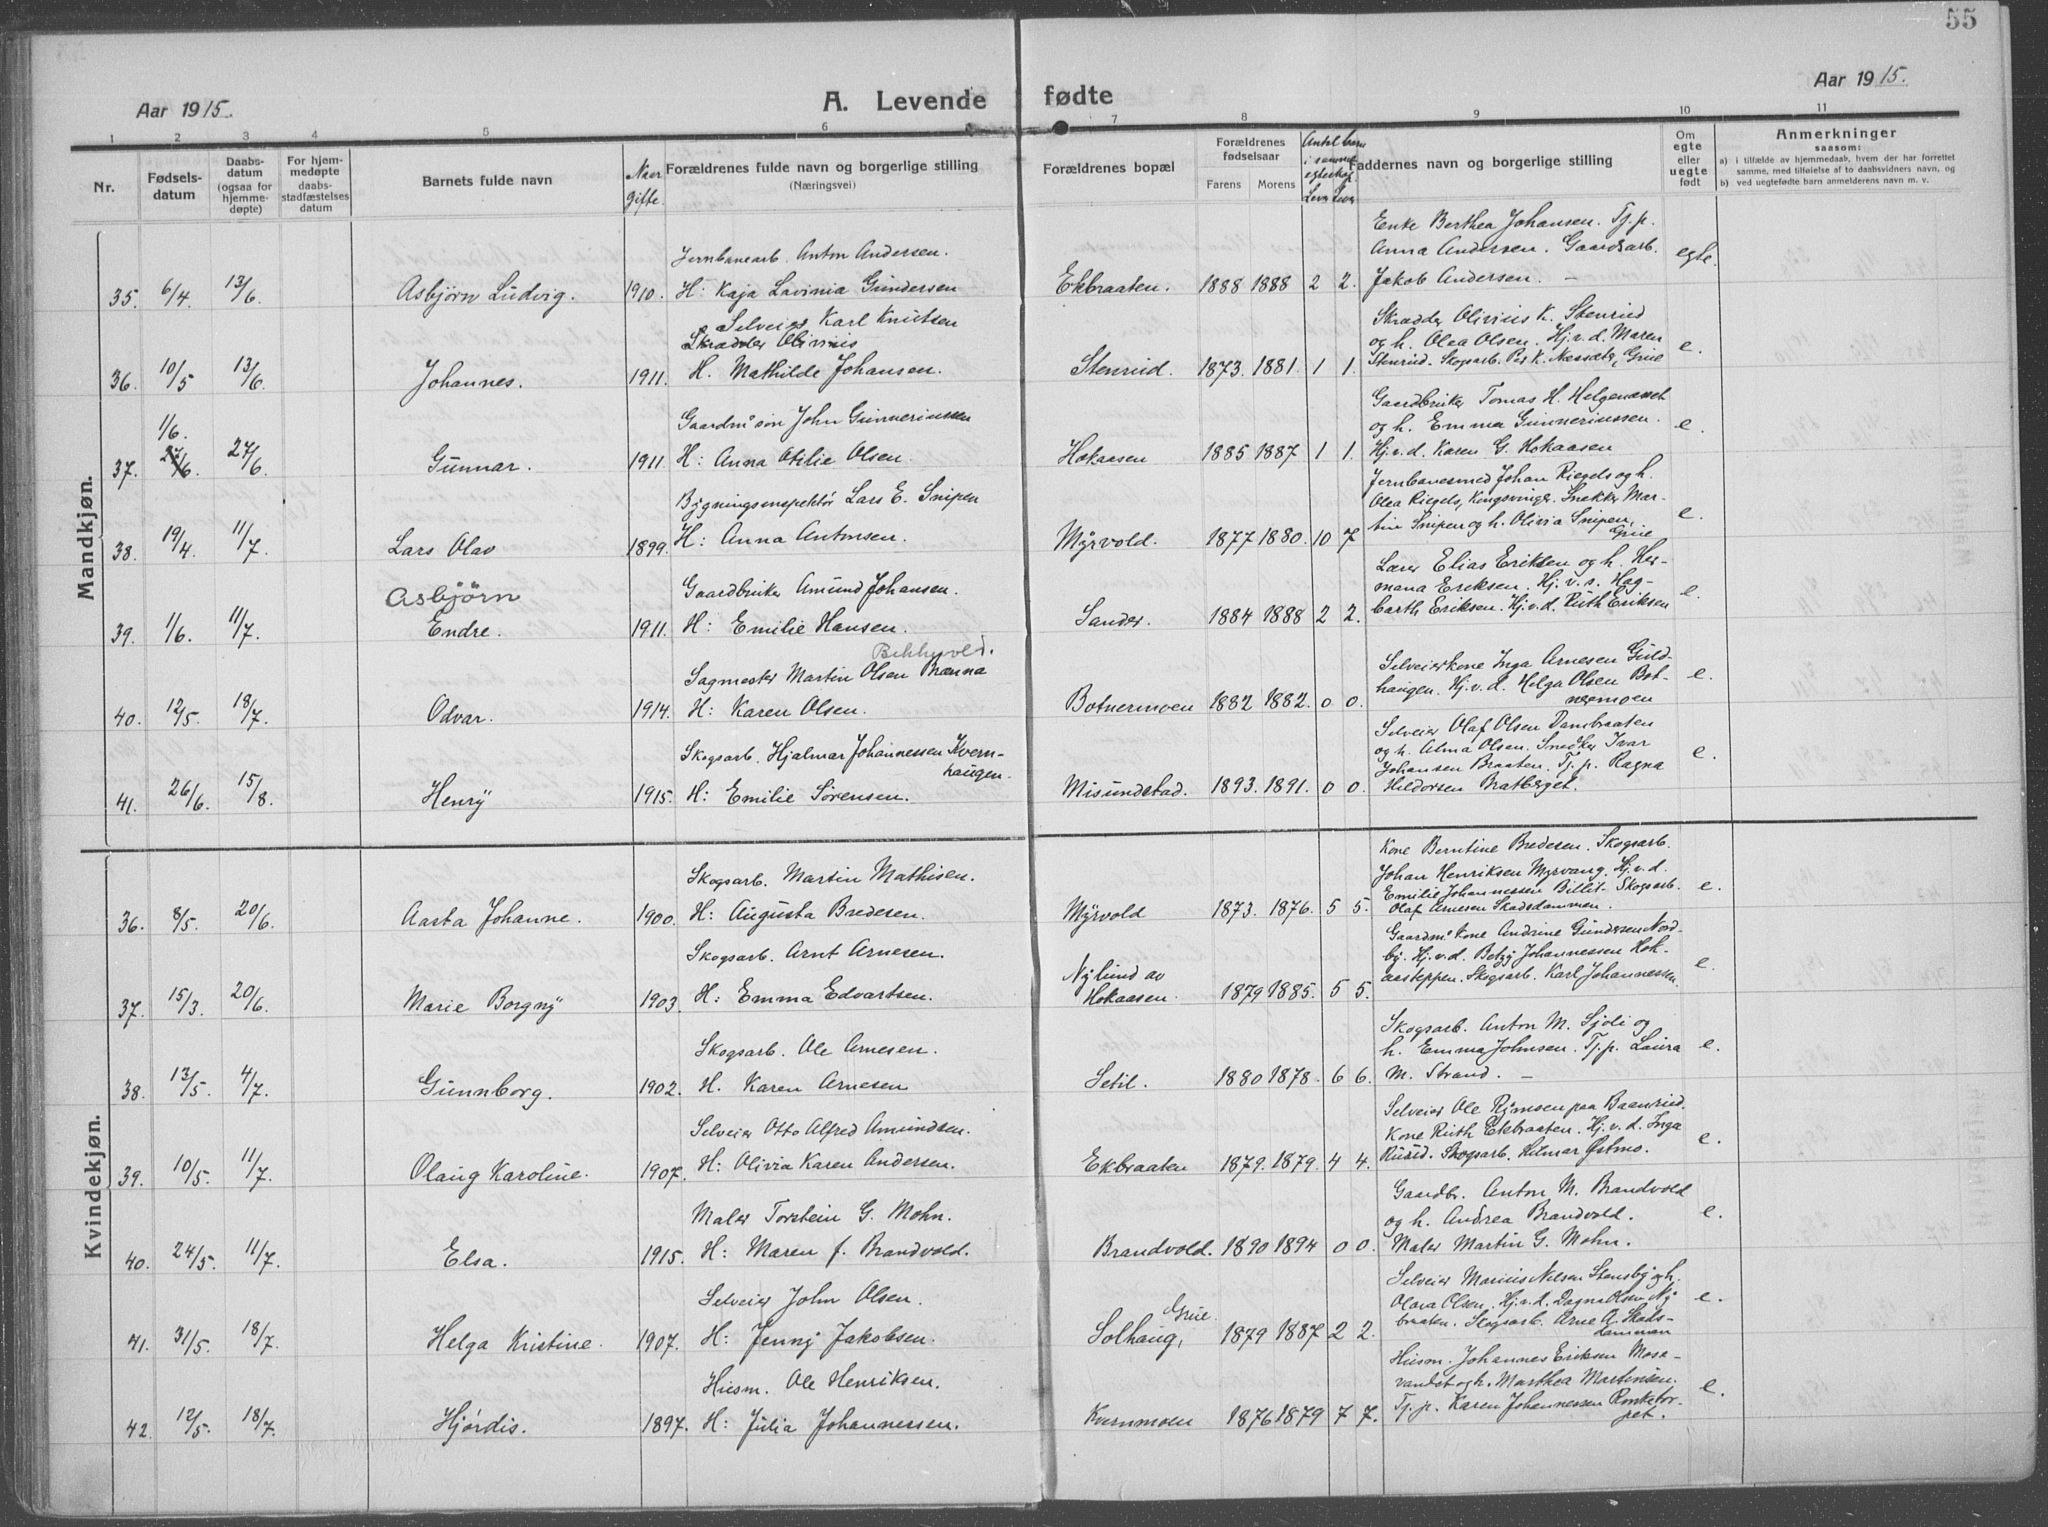 55
Aar 1915.
A. Levende fødte
Aar 1915.
1 2 3 4 5 6 7 8 9 10 11
Nr.
Fødsels-
datum
Daabs-
datum
(ogsaa for
hjemme-
døpte)
For hjem-
medøpte
daabs-
stadfæstelses
datum
Barnets fulde navn
Naar
gifte.
Forældrenes fulde navn og borgerlige stilling
(Næringsvei)
Forældrenes bopæl
Forældrenes
fødselsaar
Farens Morens
Antal barn
i samme
egteskap.
Faddernes navn og borgerlige stilling
Om
egte
eller
uegte
født
Anmerkninger
saasom:
a) i tilfælde av hjemmedaab, hvem der har forrettet
samme, med tilføielse af to daabsvidners navn, og
b) ved uegtefødte barn anmelderens navn m. v.
Mandkjøn.
Enke Berthea Johansen. Tj.p.
Jernbanearb. Anton Andersen. Anna Andersen. Gaardsarb. egte.
35. 6/4 13/6 Asbjørn Ludvig. 1910. H: Kaja Lavinia Gundersen Ekbraaten. 1888 1888 2 2. Jakob Andersen. –
Selveier Karl Knutsen Skrædder Olivius K. Stenrud
Skrædder Olivius og h. Olea Olsen. Hj.v.d. Maren
36. 10/5 13/6 Johannes. 1911. H. Mathilde Johansen. Stenrud. 1873. 1881. 1 1. Stenrud. Skogsarb. Per K. Næssæter, Grue e.
Gaardm' søn John Gunneriussen Gaardbruker Tomas H. Helgenæset
1/6. og h. Emma Gunneriussen. e.
37. 27/6 27/6 Gunnar. 1911 H: Anna Otilie Olsen. Hokaasen 1885 1887 1 1. Hj.v.d. Karen G. Hokaasen
Jernbanesmed Johan Riegels og h.
Bygningsinspektør Lars E. Snipen Olea Riegels, Kongsvinger. Snekker Mar-
38. 19/4 11/7 Lars Olav 1899. H: Anna Antonsen. Myrvold. 1877 1880. 10 7 tin Snipen og h. Olivia Snipen, Grue e.
Asbjørn Gaardbruker Amund Johansen. Lærer Elias Eriksen og h. Her-
mana Eriksen. Hj.v.s. Hag- e.
39. 1/6. 11/7. Endre. 1911. H: Emilie Hansen. Sander. 1884 1888 2 2. barth Eriksen. Hj.v.d. Ruth Eriksen
Bekkevold.
Sagmester Martin Olsen Brænna Selveierkone Inga Arnesen Guld-
haugen. Hj.v.d. Helga Olsen Bot- e.
40. 12/5. 18/7 Odvar. 1914. H: Karen Olsen. Botnermoen 1882 1882. 0 0. nermoen
Selveier Olaf Olsen Dambraaten
Skogsarb. Hjalmar Johannessen Kvern- og h. Alma Olsen. Snedker Ivar
haugen. Johansen Braaten. Tj.p. Ragna e.
41. 26/6. 15/8. Henry 1915. H: Emilie Sørensen. Misundstad. 1893. 1891. 0 0. Hildorsen Bratberget.
Kvindekjøn.
Kone Berntine Bredesen. Skogsarb.
Skogsarb. Martin Mathisen. Johan Henriksen Myrvang. Hj.v.d.
Emilie Johannessen Billit. Skogsarb. e.
36. 8/5. 20/6. Aasta Johanne. 1900. H: Augusta Bredesen. Myrvold 1873. 1876. 5 5. Olaf Arnesen Skadsdammen.
Skogsarb. Arnt Arnesen. Gaardm' Kone Andrine Gundersen Nord-
Nylund av by. Hj.v.d. Betzy Johannessen Hok- e.
37. 15/3. 20/6. Marie Borgny 1903. H: Emma Edvartsen. Hokaasen. 1879 1885. 5 5. aasteppen. Skogsarb. Karl Johannessen.
Skogsarb. Ole Arnesen. Skogsarb. Anton M. Sjoli og
h. Emma Johnsen. Tj.p. Laura e.
38. 13/5. 4/7. Gunnborg. 1902. H. Karen Arnesen Setil. 1880 1878. 6 6. M. Strand. –
Selveier Otto Alfred Amundsen. Selveier Ole Rymsen paa Baanrud.
Kone Ruth Ekbraaten. Hj.v.d. Inga e.
39. 10/5. 11/7. Olaug Karoline. 1907. H: Olivia Karen Andersen. Ekbraaten 1879. 1879. 4 4. Rusud. Skogsarb. Hilmar Østmo.
Maler Torstein G. Mohn. Gaardbr. Anton M. Brandvold
og h. Andrea Brandvold. e.
40. 24/5. 11/7. Elsa. 1915. H: Maren f. Brandvold. Brandvold. 1890 1894 0 0. Maler Martin G. Mohn.
Selveier John Olsen. Selveier Marius Nilsen Stensby og h.
Grue. Olava Olsen. Hj.v.d. Dagna Olsen Ny- e.
41. 31/5. 18/7. Helga Kristine. 1907. H: Jenny Jakobsen. Solhaug, 1879 1887 2 2. braaten. Skogsarb. Arne A. Skads-
dammen
Husm. Ole Henriksen. Husm. Johannes Eriksen Mosa-
vandet og h. Marthea Martinsen. e.
42. 12/5. 18/7. Hjørdis. 1897. H: Julia Johannessen. Kvernmoen 1876 1879 7 7. Tj.p. Karen Johannessen Ronketor-
pet.